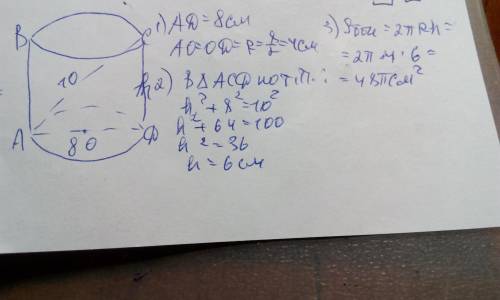 B
C
10
A
8 O
D
h
1) AD = 8 см
AO = OD = R = 8/2 = 4 см
2) В △ ACD по т. П.:
h² + 8² = 10²
h² + 64 = 100
h² = 36
h = 6 см
3) Sбок = 2πRh =
= 2π 4 · 6 =
= 48π см²